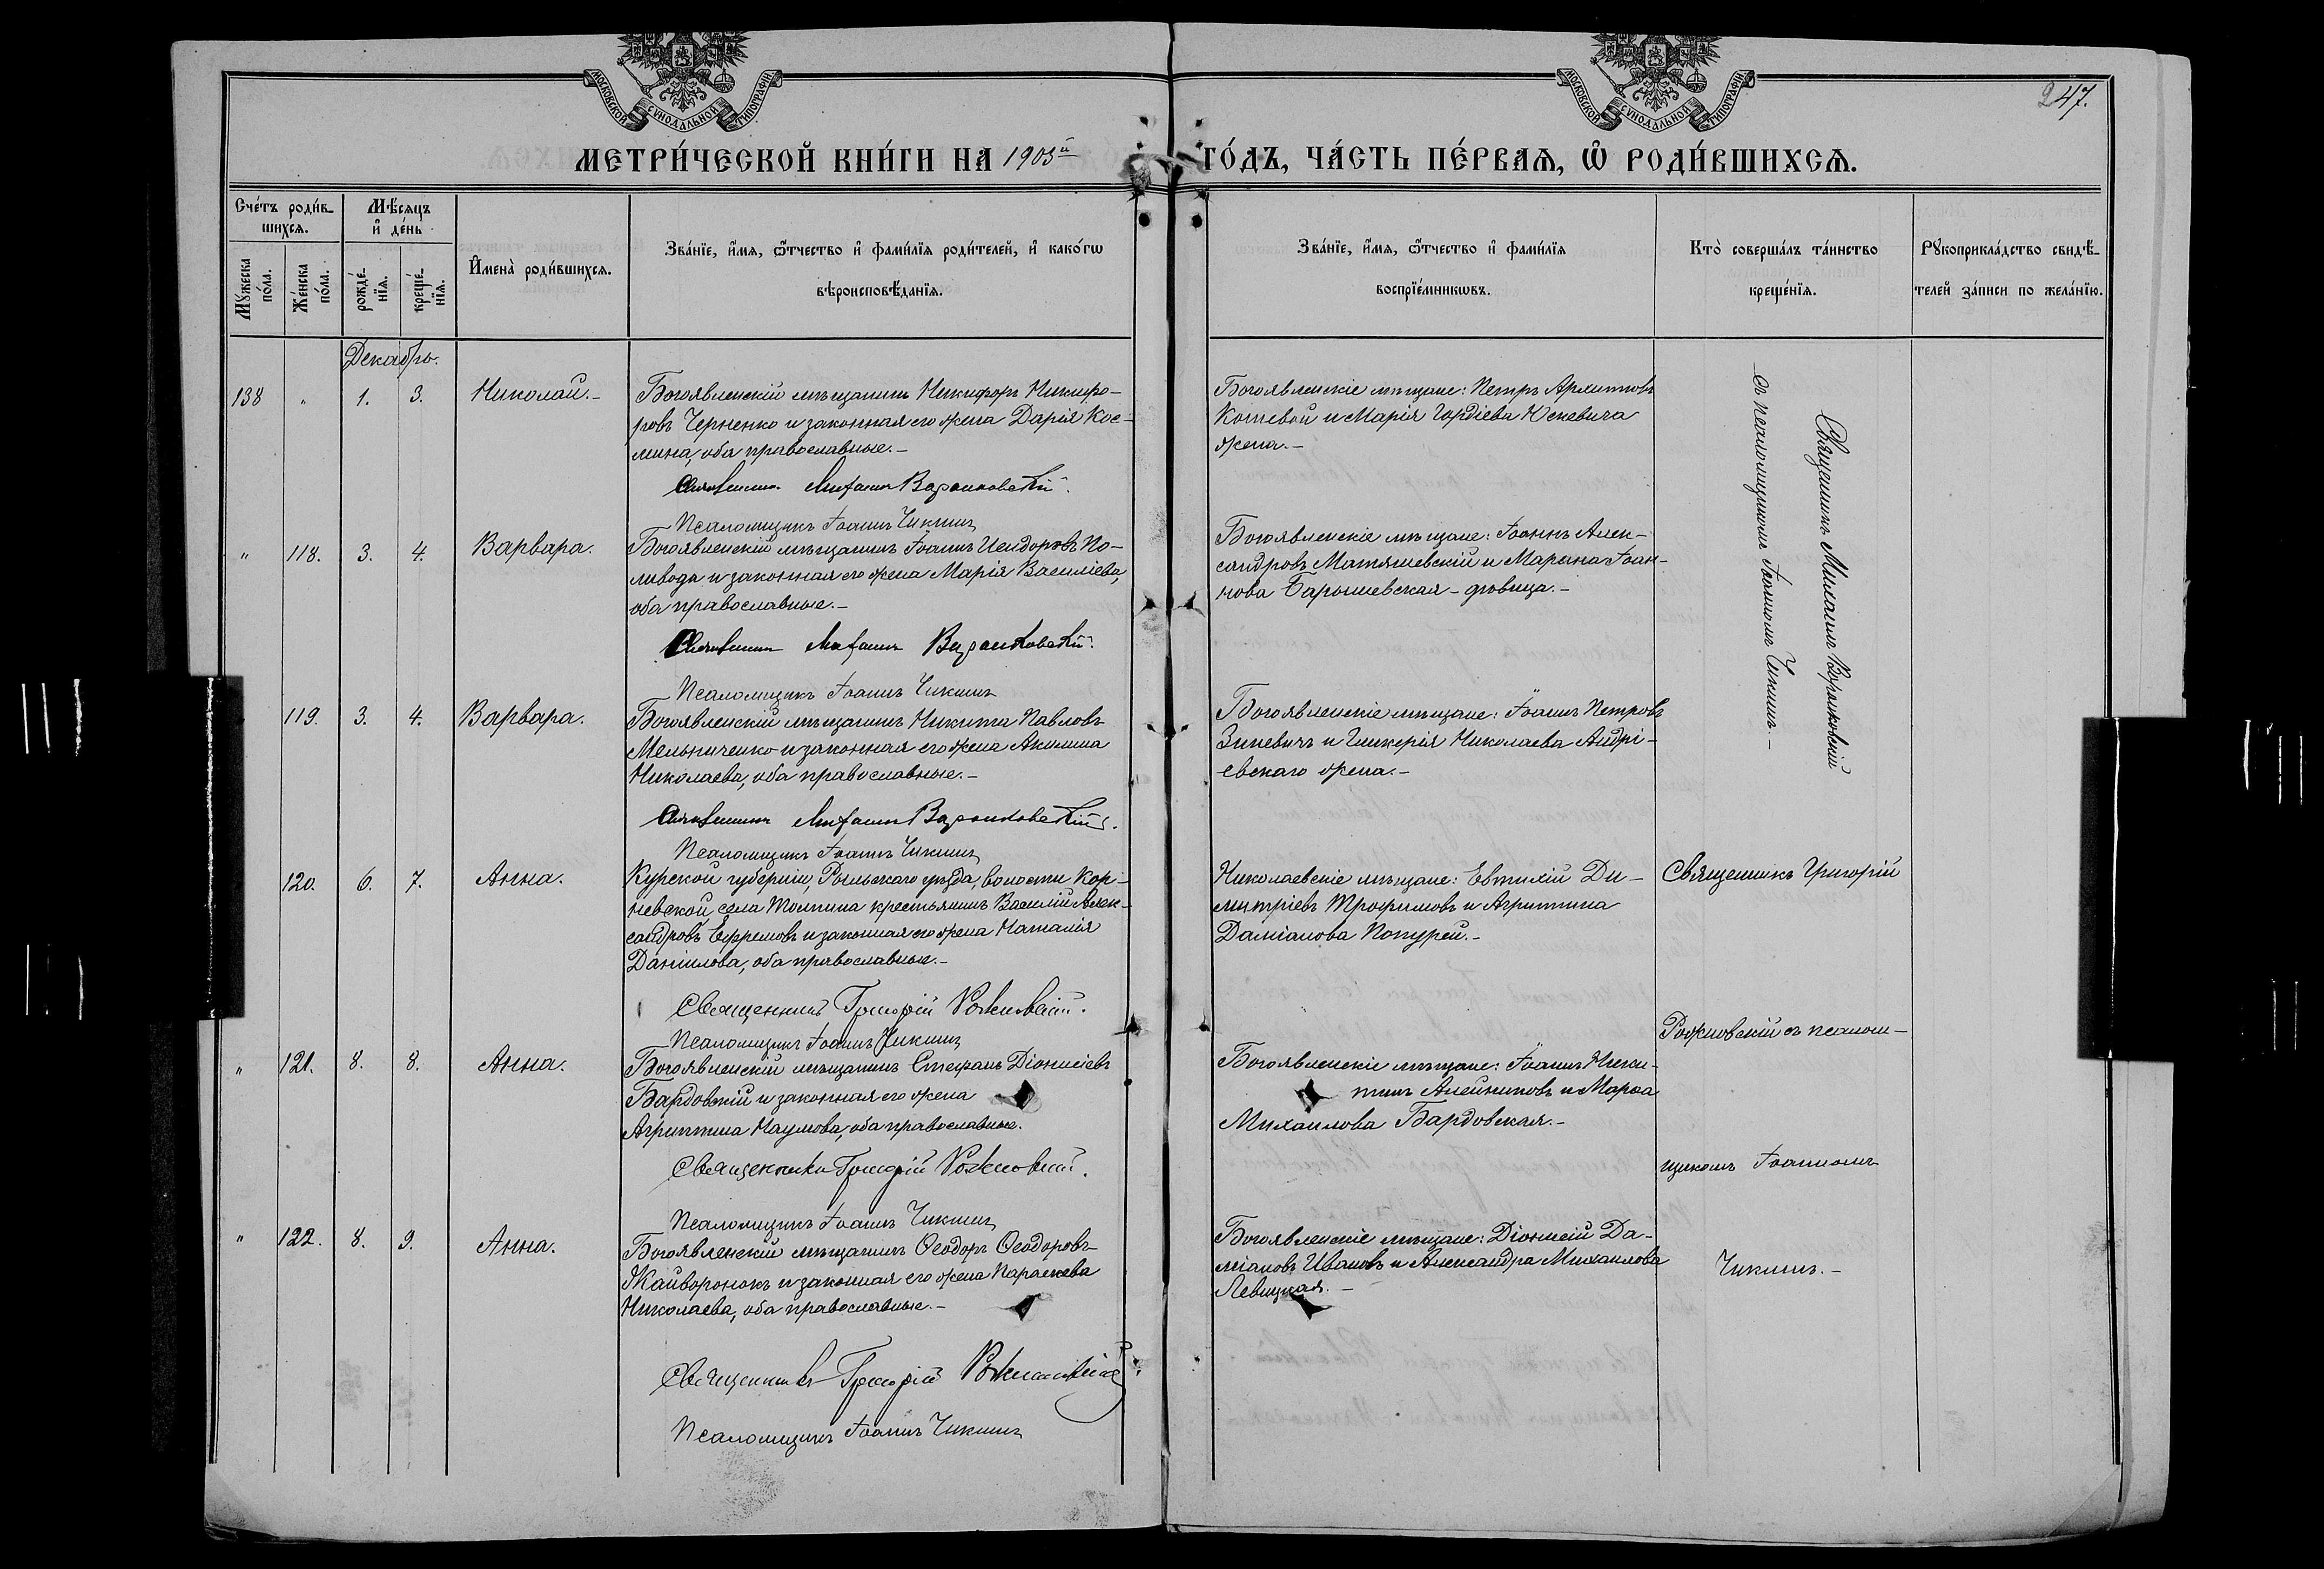 МОСКОВСКОЙ СѴНОДАЛЬНОЙ ТИПОГРАФІИ
МОСКОВСКОЙ СѴНОДАЛЬНОЙ ТИПОГРАФІИ
247.
МЕТРИ́ЧЕСКОЙ КНИ́ГИ НА 1905й
ГО́ДЪ, ЧА́СТЬ ПЕ́РВАѦ, Ѽ РОДИ́ВШИХСѦ.
Сче́тъ роди́в-
шихсѧ.
Мѣ́сяцъ
и҆ де́нь
Мꙋ́жеска
по́ла.
Же́нска
по́ла.
рожде́-
нїѧ.
креще́-
нїѧ.
И҆мена̀ роди́вшихсѧ.
Зва́нїе, и҆́мѧ, ѻ҆́тчество и҆ фами́лїѧ роди́телей, и҆ како́гѡ
вѣроисповѣ́данїѧ.
Зва́нїе, и҆́мѧ, ѻ҆́тчество и҆ фами́лїѧ
воспрїе́мникѡвъ.
Кто̀ соверша́лъ та́инство
креще́нїѧ.
Рꙋкоприкла́дство свидѣ́-
телей за́писи по жела́нїю.
Декабрь.
138 " 1. 3. Николай.-
Богоявленскій мѣщанинъ Никифоръ Никифо-
ровъ Черненко и законная его жена Дарія Кос-
мина, оба православные.-
Священникъ Михаилъ Воронковскій.
Псаломщикъ Іоаннъ Чикшинъ
Богоявленскіе мѣщане: Петръ
Кошевой и Марія Гордіева
жена.-
Священникъ Михаилъ Воронковскій
съ псаломщикомъ Іоанномъ Чикшин.-
" 118. 3. 4. Варвара.
Богоявленскій мѣщанинъ Іоаннъ Исидоровъ По-
ливода и законная его жена Марія Василіева,
оба православные.-
Священникъ Михаилъ Воронковскій.
Псаломщикъ Іоаннъ Чикшинъ
Богоявленскіе мѣщане: Іоаннъ Алек-
сандровъ Матяшевскій и Марина Іоан-
нова Барышевская - дѣвица.-
119. 3. 4. Варвара.
Богоявленскій мѣщанинъ Никита Павловъ
Мельниченко и законная его жена Акилина
Николаева, оба православные.-
Священникъ Михаилъ Воронковскій.
Псаломщикъ Іоаннъ Чикшинъ
Богоявленскіе мѣщане: Іоаннъ Петровъ
Зиневичъ и Гликерія Николаева Андрі-
евскаго жена.-
120. 6. 7. Анна.
Курской губерніи, Рыльскаго уѣзда, волости Кор-
невской села Толпина крестьянинъ Василій Алек-
сандровъ Ефремовъ и законная его жена Наталія
Даніилова, оба православные.-
Священникъ Григорій Рожновскій.
Псаломщикъ Іоаннъ Чикшинъ
Николаевскіе мѣщане: Евтихій Ди-
митріевъ Трофимовъ и Агриппина
Даміанова Попурей.-
Священникъ Григорій
Рожновскій съ псалом-
" 121. 8. 8. Анна.
Богоявленскій мѣщанинъ Стефанъ Діонисіевъ
Бардовскій и законная его жена
Агриппина Наумова, оба православные.
Священникъ Григорій Рожновскій.
Псаломщикъ Іоаннъ Чикшинъ
Богоявленскіе мѣщане: Іоаннъ Ники-
тинъ Алейниковъ и Марѳа
Михаилова Бардовская.-
щикомъ Іоанномъ
" 122. 8. 9. Анна.
Богоявленскій мѣщанинъ Ѳеодоръ Ѳеодоровъ
Жайворонокъ и законная его жена Параскева
Николаева, оба православные.-
Священникъ Григорій Рожновскій
Псаломщикъ Іоаннъ Чикшинъ
Богоявленскіе мѣщане: Діонисій Да-
міановъ Ивановъ и Александра Михаилова
Левицкая.-
Чикшин.-